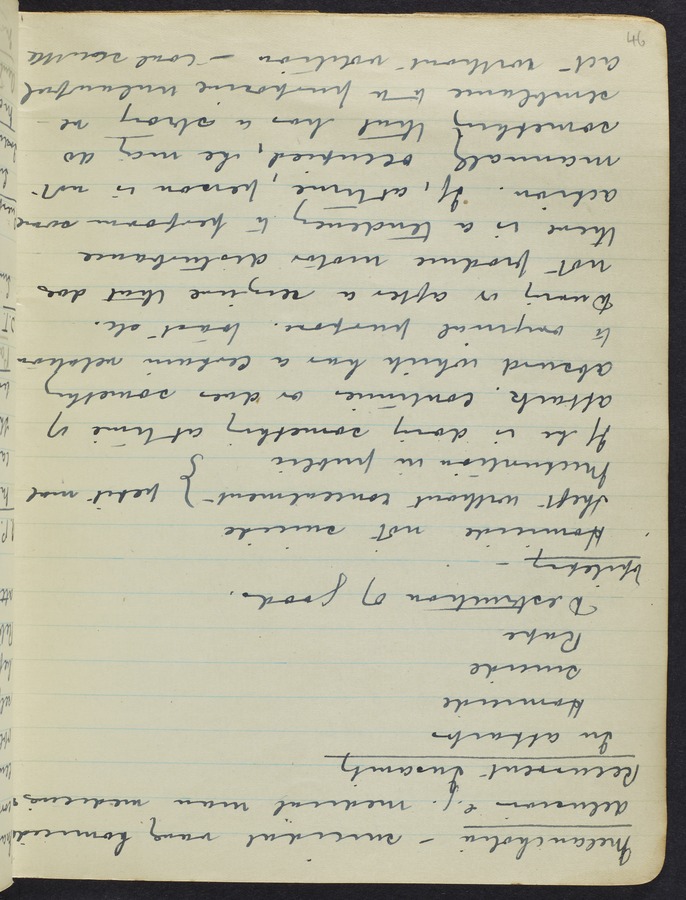 Melancholia - suicidal vary homicidal
delusions e.g. medical man medicines
Recurrent Insanity
In attacks
Homicide
suicide
Rape
Destruction of goods.
Epilepsy -
Homicide not suicide
theft without concealment } petit mal
Micturition in public }
If he is doing something at time of
attack, continues or does something
absurd which has a certain relation
to original purpose. part etc.
During or after a seizure that does
not produce motor disturbance
there is a tendency to perform some
action. If, at time, person is not
manually occupied, he may do
something that has a strong re
semblance to a purposive unlawful
act without volition -
46